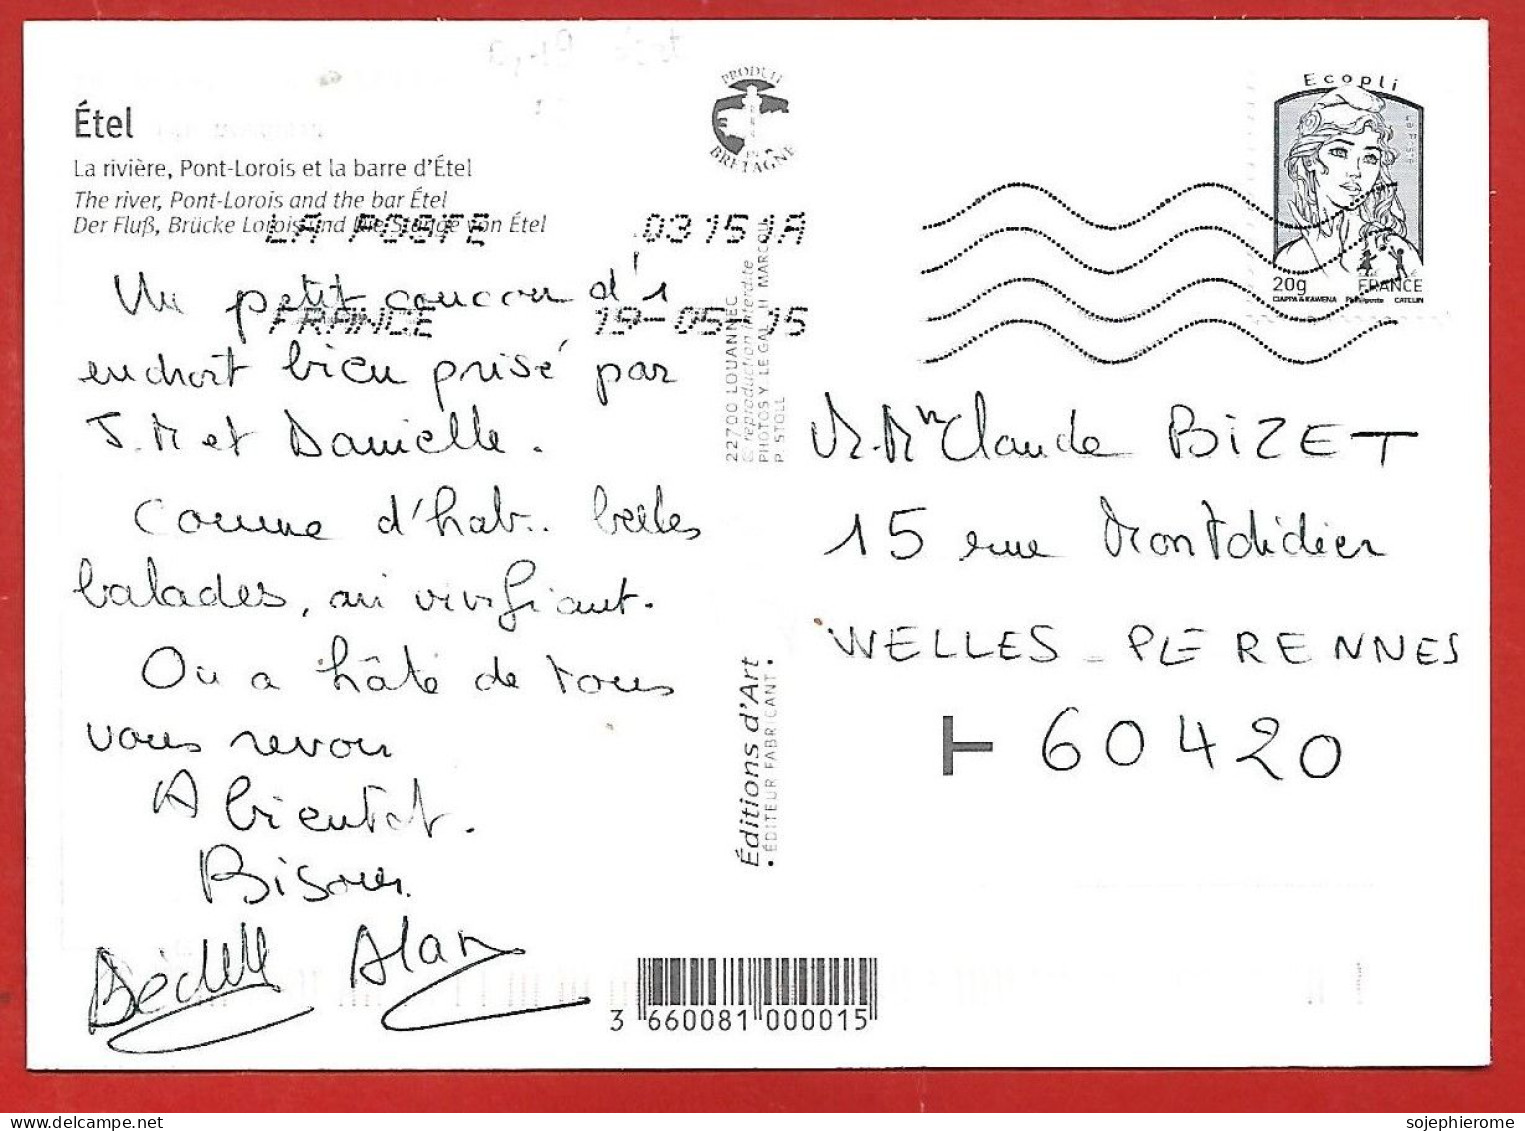 Étel
La rivière, Pont-Lorois et la barre d'Étel
The river, Pont-Lorois and the bar Étel
Der Fluß, Brücke Lorois und die Stange von Étel
PRODUIT
EN
BRETAGNE
Ecopli
La Poste
20g FRANCE
CIAPPA & KAWENA Phil@poste CATELIN
LA POSTE 03151A
FRANCE 19-05-15
Un petit coucou d'1
endroit bien prisé par
J.M et Danielle.
Comme d'hab.. belles
balades, air vivifiant.
On a hâte de vous
vous revoir
A bientôt.
Bisous
Alain
22700 LOUANNEC
© reproduction interdite
PHOTOS Y. LE GAL, H. MARCOU,
P. STOLL
Éditions d'Art
• ÉDITEUR FABRICANT •
M. Mme Claude BIZET
15 rue Montdidier
WELLES-PERENNES
60420
3 660081 000015
sojephierome